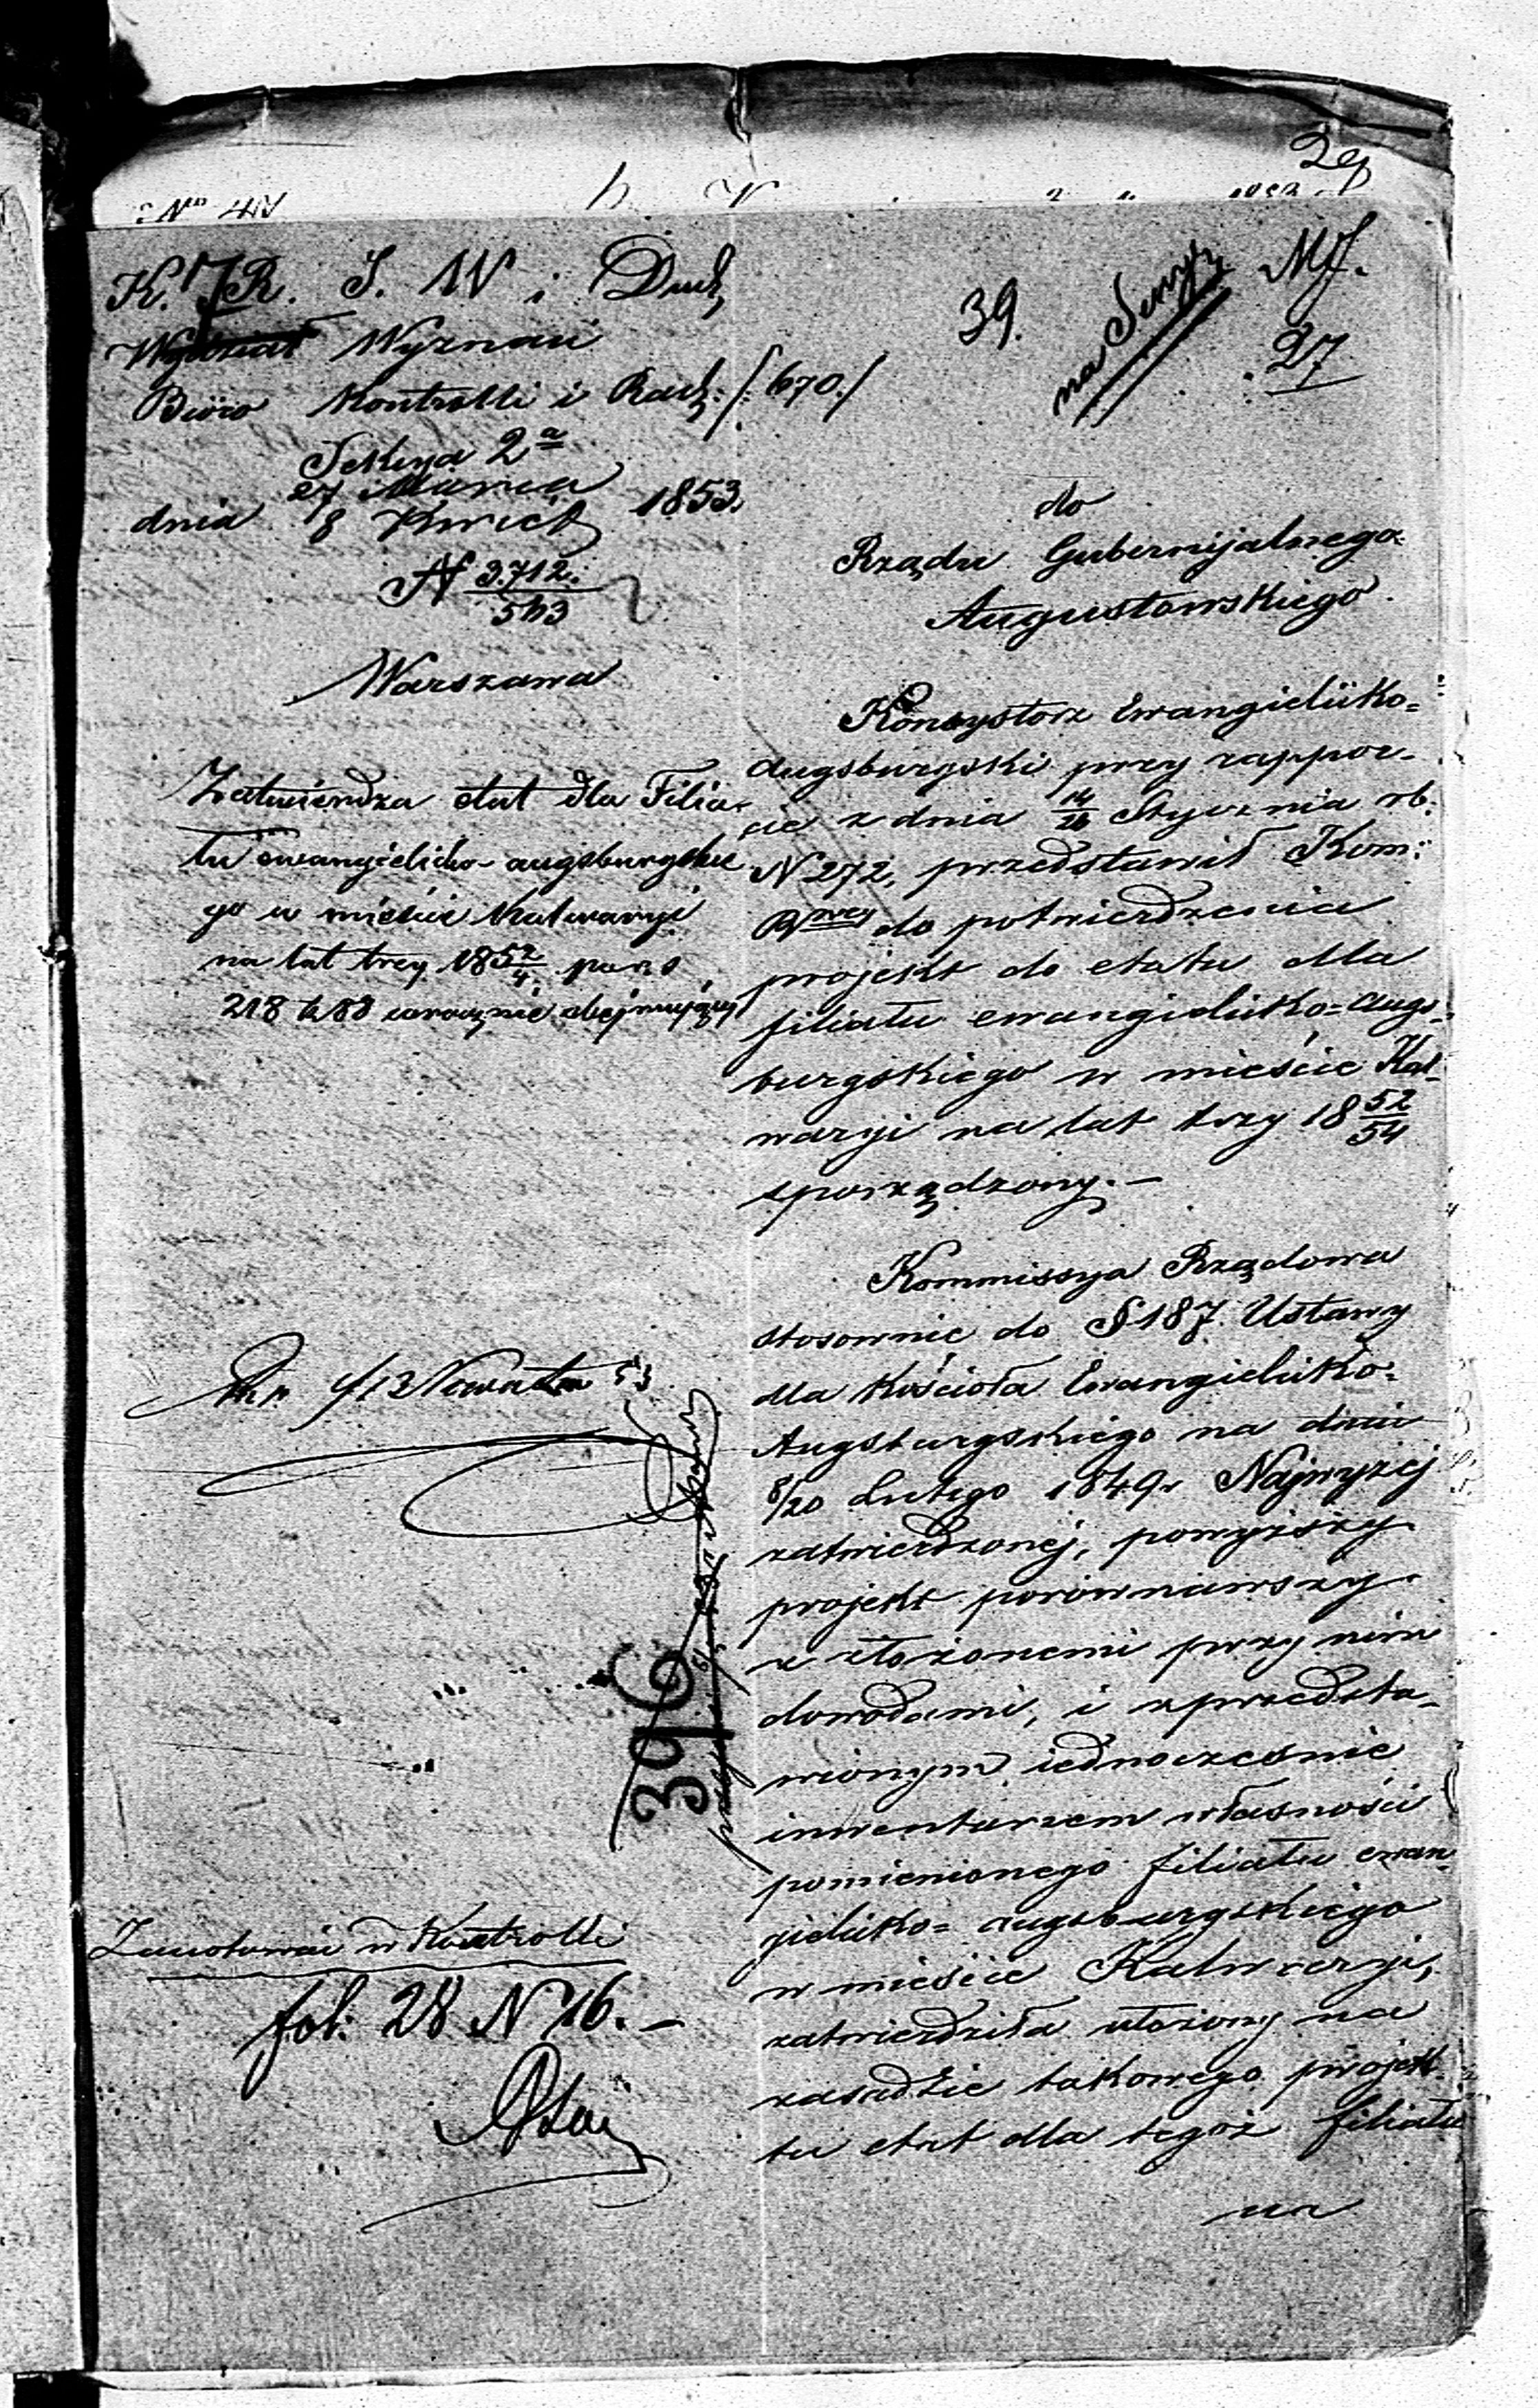 29
K. R. S. W. i Duch
Wydział Wyznań
Bióro Kontrolli i Rach: /:670:/
Sekcya 2a
dnia 27 Marca / 8 Kwiet 1853.
N 3712. / 543
Warszawa
39.
MJ.
27
do
Rządu Gubernijalnego
Augustowskiego.
Zatwierdza etat dla Filia-
łu ewangielicko-augsburgskie
go w mieście Kalwaryi
na lat trzy 1852/4
218 k 88 corocznie obejmujący
fol: 28 N 16. –
Zanotować w Kontrolli
396
Konsystorz Ewangielicko=
Augsburgski przy rappor-
cie z dnia 14/26 Stycznia rb.
N 272, przedstawił Kom:
Rzwey do potwierdzenia
projekt do etatu dla
filiału ewangielicko=augs-
burgskiego w mieście Kal-
waryi na lat trzy 18 52/54
sporządzony. –
Kommissya Rządowa
stosownie do § 187. Ustawy
dla Kościoła Ewangielicko=
Augsburgskiego na dniu
8/20 Lutego 1849 r Najwyżej
zatwierdzonej, powyższy
projekt porównawszy
z złożonemi przy nim
dowodami, i z przedsta-
wionym iednocześnie
inwentarzem własności
pomienionego filiału ewan-
gielicko= augsburgskiego
w mieście Kalwaryi,
zatwierdziła ułożony na
zasadzie takowego projek-
tu etat dla tegoż filiału
na